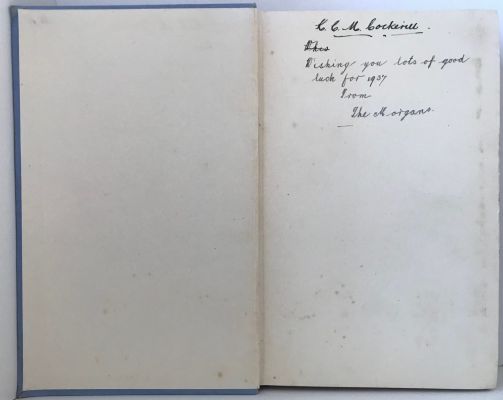 C. C. M. Cockerell.
This
Wishing you lots of good
luck for 1937
From
The Morgans.